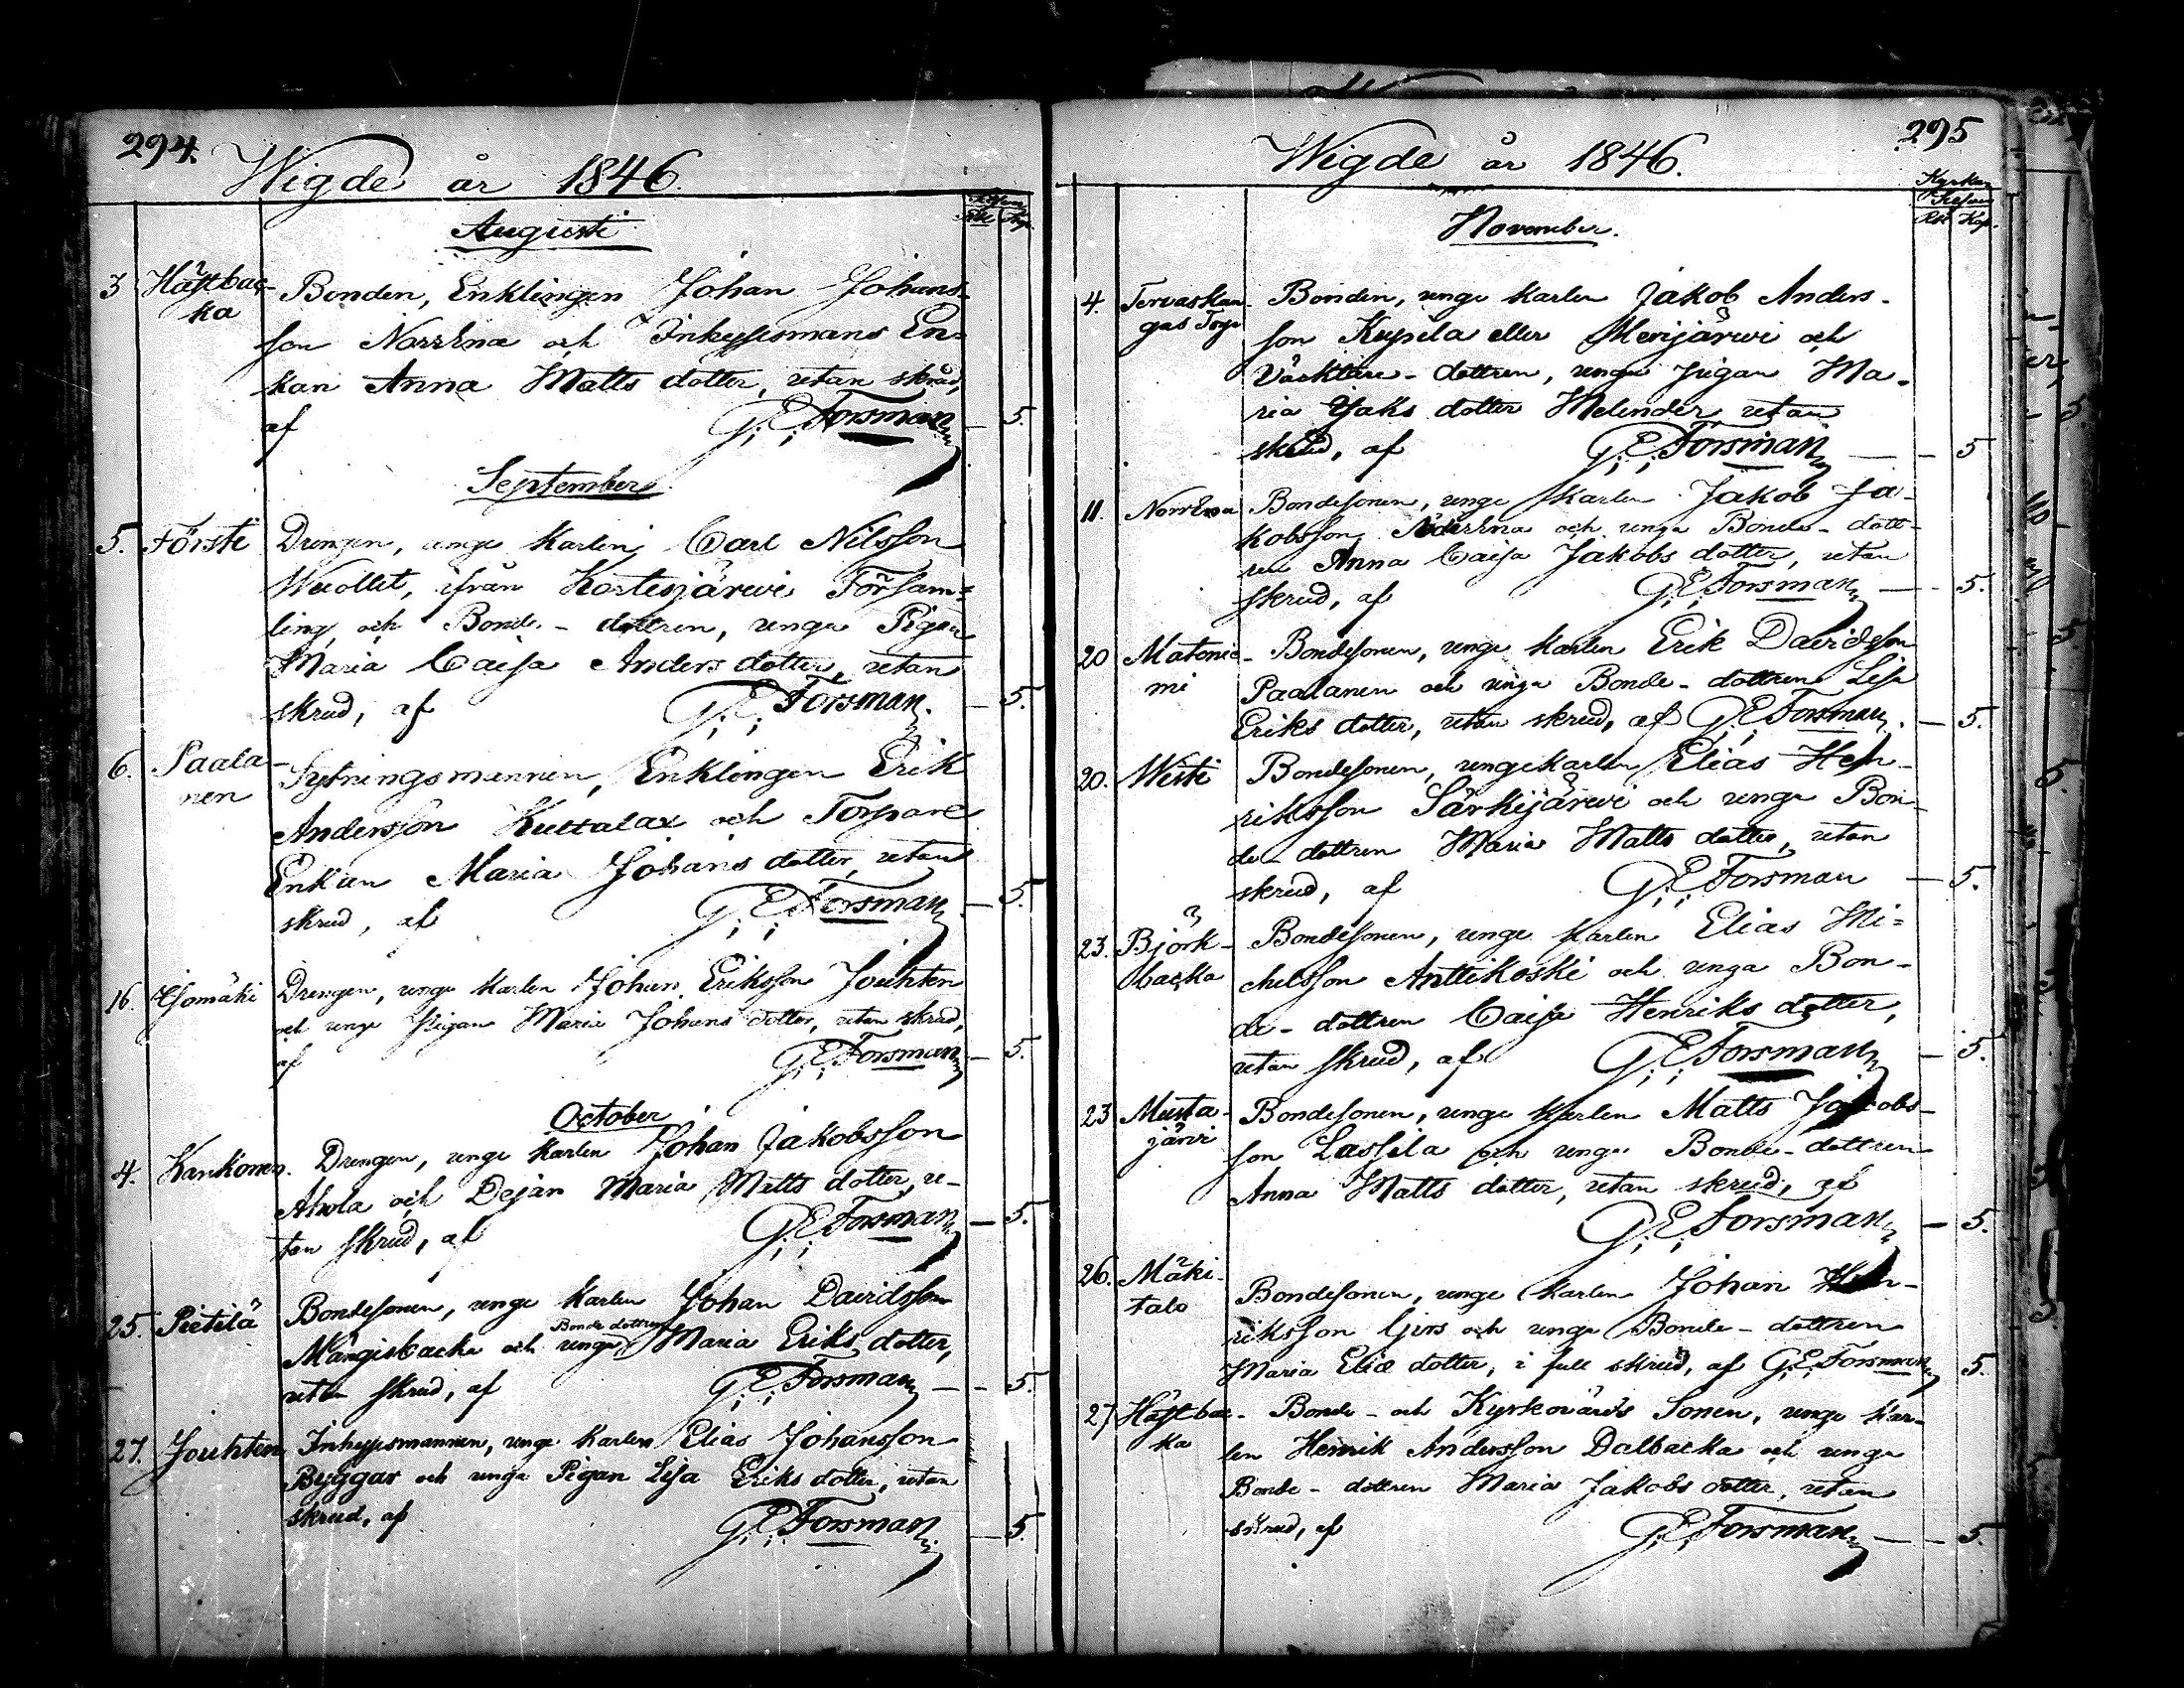 294.
Wigde år 1846.
Kassan
Rbl Kop.
Augusti
3 Håstbac-
ka
Bonden, Enklingen Johan Johans-
son Norrena och Inhysesmans En-
kan Anna Matts dotter, utan skrud,
af G. E. Forsman — 5.
September
5. Försti Drengen, unge Karlen Carl Nilsson
Wuollet, ifrån Kortesjärwi Försam-
ling, och Bonde-dottren, unga Pigan
Maria Caisa Anders dotter, utan
skrud, af G. E. Forsman. — 5.
6. Paala-
nen
Sytningsmannen, Enklingen Erik
Andersson Kuttalax och Torpare
Enkan Maria Johans dotter, utan
skrud, af G. E. Forsman — 5.
16. Isomäki Drengen, unge Karlen Johan Eriksson Jouhten
och unge Pigan Maria Johans dotter, utan skrud,
af G. E. Forsman — 5.
October
4. Kankonen. Drengen, unge Karlen Johan Jakobsson
Ahola och Dejan Maria Matts dotter, u-
tan skrud, af G. E. Forsman — 5.
25. Pietilä Bondesonen, unge Karlen Johan Davidsson
Mångisbacka och unga Bonde dottren Maria Eriks dotter,
utan skrud, af G. E. Forsman — - 5.
27. Jouhten Inhysesmannen, unge Karlen Elias Johansson
Byggar och unga Pigan Lisa Eriks dotter, utan
skrud, af G. E. Forsman — 5.
295
Wigde år 1846.
Kyrko
Kassan
Rbl Kop.
November.
4. Tervaskan-
gas Torp
Bonden, unge Karlen Jakob Anders-
son Kupila eller Merijärwi och
dottren, unga Pigan Ma-
ria Isaks dotter Melender, utan
skrud, af G. E. Forsman — - 5
11. Norrena Bondesonen, unge Karlen Jakob Ja-
kobsson och unga Bonde-dott-
ren Anna Caisa Jakobs dotter, utan
skrud, af G. E. Forsman — - 5.
20 Matonie-
mi
Bondesonen, unge Karlen Erik Davidsson
Paalanen och unga Bonde-dottren Lisa
Eriks dotter, utan skrud, af G. E. Forsman. — 5.
20. Wisti Bondesonen, unge Karlen Elias Hen-
riksson Särkijärwi och unga Bon-
de-dottren Maria Matts dotter, utan
skrud, af G. E. Forsman — 5.
23. Björk-
backa
Bondesonen, unge Karlen Elias Mi-
chelsson Anttikoski och unga Bon-
de-dottren Caisa Henriks dotter,
utan skrud, af G. E. Forsman — 5.
23 Musta-
järvi
Bondesonen, unge Karlen Matts Jakobs-
son Lassila och unga Bonde-dottren
Anna Matts dotter, utan skrud, af
G. E. Forsman — 5.
26. Mäki-
talo
Bondesonen, unge Karlen Johan Hen-
riksson Girs och unga Bonde-dottren
Maria Eliæ dotter, i full skrud, af G. E. Forsman 5.
27 Håstbac-
ka
Bonde- och Kyrkovärds Sonen, unge Kar-
len Henrik Andersson Dalbacka och unga
Bonde-dottren Maria Jakobs dotter, utan
skrud, af G. E. Forsman — - 5.